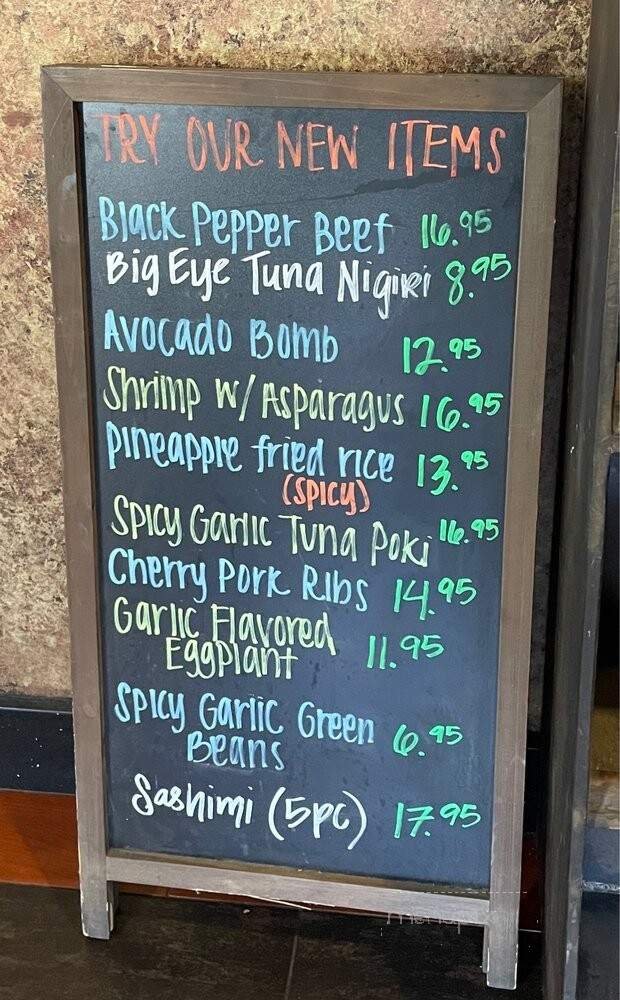 TRY OUR NEW ITEMS
Black Pepper Beef 16.95
Big Eye Tuna Nigiri 8.95
Avocado Bomb 12.95
Shrimp w/ Asparagus 16.95
Pineapple fried rice 13.95
(SPICY)
Spicy Garlic Tuna Poki 16.95
Cherry Pork Ribs 14.95
Garlic Flavored
Eggplant 11.95
Spicy Garlic Green
Beans 6.95
Sashimi (5pc) 17.95